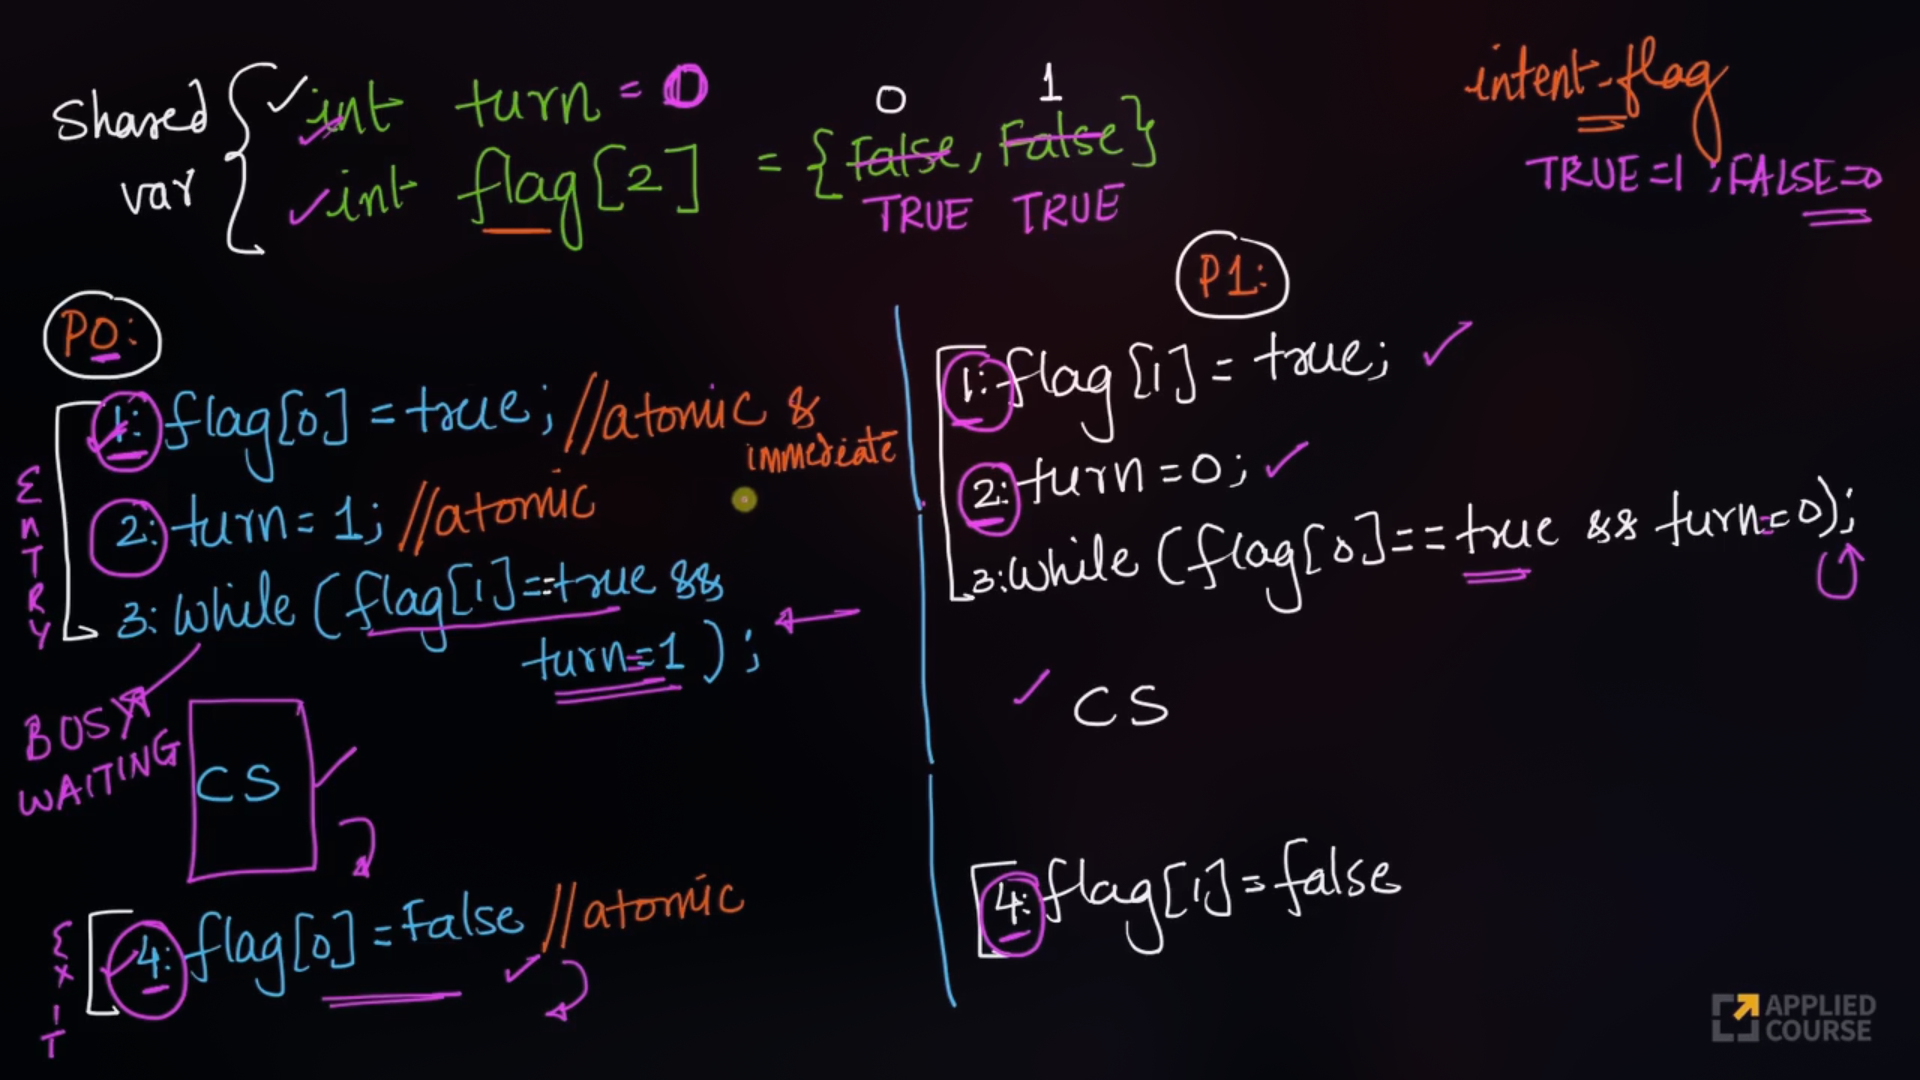 Shared var
int turn = 0
int flag[2] = {False, False}
0 1
TRUE TRUE
intent-flag
TRUE=1 ; FALSE=0
P0:
1: flag[0] = true; //atomic & immediate
2: turn = 1; //atomic
3: while (flag[1]==true &&
turn==1);
ENTRY
BUSY
WAITING
CS
4: flag[0] = False //atomic
EXIT
P1:
1: flag[1] = true;
2: turn = 0;
3: while (flag[0]==true && turn==0);
CS
4: flag[1] = false
APPLIED
COURSE